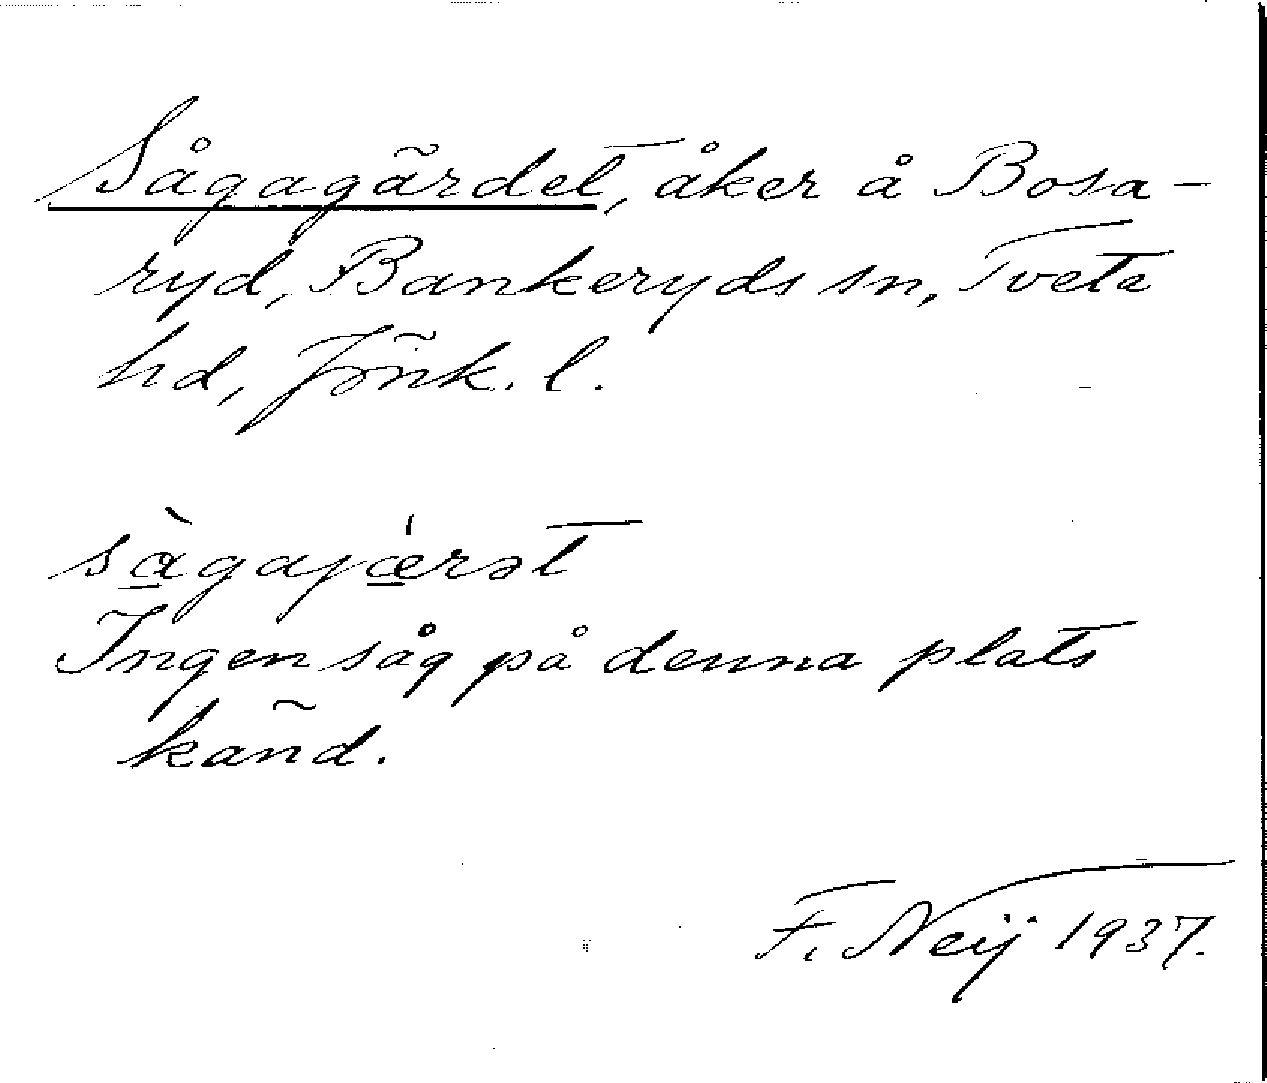 Sågagärdet, åker å Bosa-
ryd, Bankeryds sn, Tveta
hd, Jönk. l.
sàgajǽrət
Ingen såg på denna plats
känd.
F. Neij 1937.